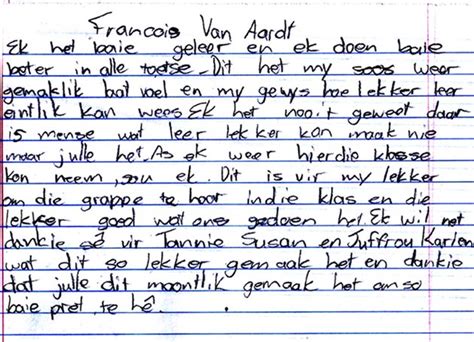 Francois Van Aardt
Ek het baie geleer en ek doen baie
beter in alle toetse. Dit het my soos weer
gemaklik laat voel en my gewys hoe lekker leer
eintlik kan wees Ek het nooit geweet daar
is mense wat leer lekker kan maak nie
maar julle het. As ek weer hierdie klasse
kon neem, sou ek. Dit is vir my lekker
om die grappe te hoor indie klas en die
lekker goed wat ons gedoen het. Ek wil net
dankie sê vir Tannie Susan en Juffrou Karlen
wat dit so lekker gemaak het en dankie
dat julle dit moontlik gemaak het om so
baie pret te hê.